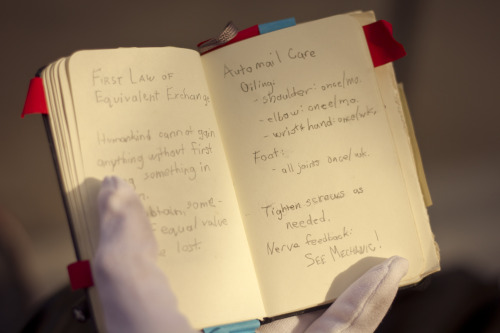 First Law of
Equivalent Exchange
Humankind cannot gain
anything without first
something in
obtain, some-
equal value
lost.
Automail Care
Oiling:
- shoulder: once/mo.
- elbow: once/mo.
- wrist & hand: once/wk.
Foot:
- all joints once/wk.
Tighten screws as
needed.
Nerve feedback:
See Mechanic!